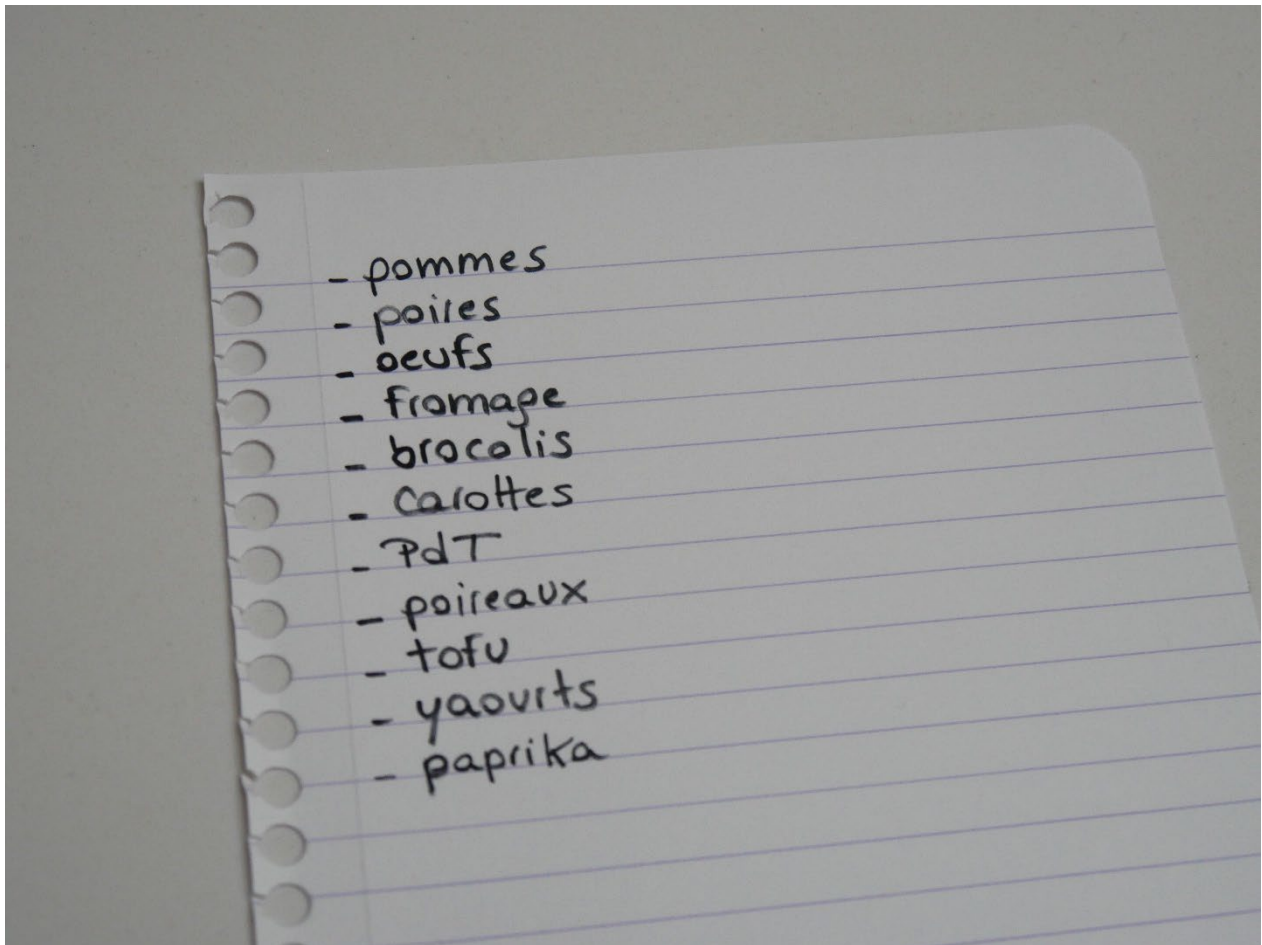 - pommes
- poires
- oeufs
- fromage
- brocolis
- carottes
- PdT
- poireaux
- tofu
- yaourts
- paprika